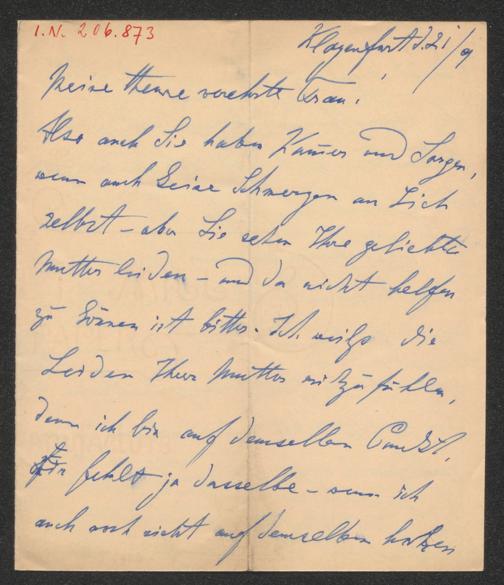 I.N. 206.873
Klagenfurt d. 21/9
Meine theure verehrte Frau!
Also auch Sie haben Kummer und Sorgen,
wenn auch keine Schmerzen an Sich
selbst – aber Sie sehen Ihre geliebte
Mutter leiden – und da nicht helfen
zu können ist bitter. Ich weiß die
Leiden Ihrer Mutter mitzufühlen,
denn ich bin auf demselben Punkt,
mir fehlt ja dasselbe – wenn ich
auch noch nicht auf demselben hohen